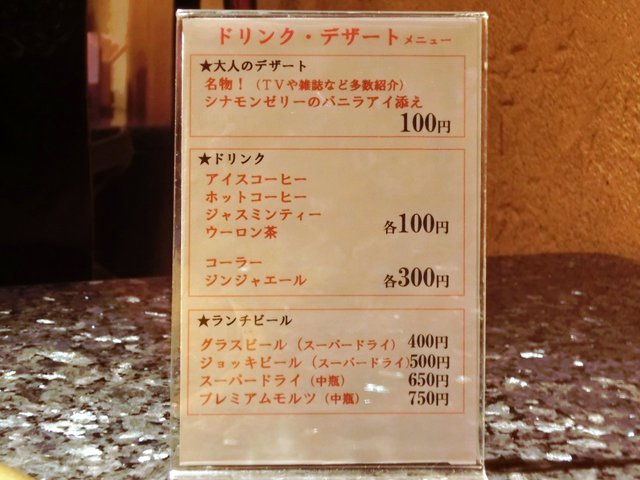 ドリンク・デザートメニュー
★大人のデザート
名物！（ＴＶや雑誌など多数紹介）
シナモンゼリーのバニラアイ添え
100円
★ドリンク
アイスコーヒー
ホットコーヒー
ジャスミンティー
ウーロン茶
各100円
コーラー
ジンジャエール
各300円
★ランチビール
グラスビール（スーパードライ） 400円
ジョッキビール（スーパードライ）500円
スーパードライ（中瓶） 650円
プレミアムモルツ（中瓶） 750円